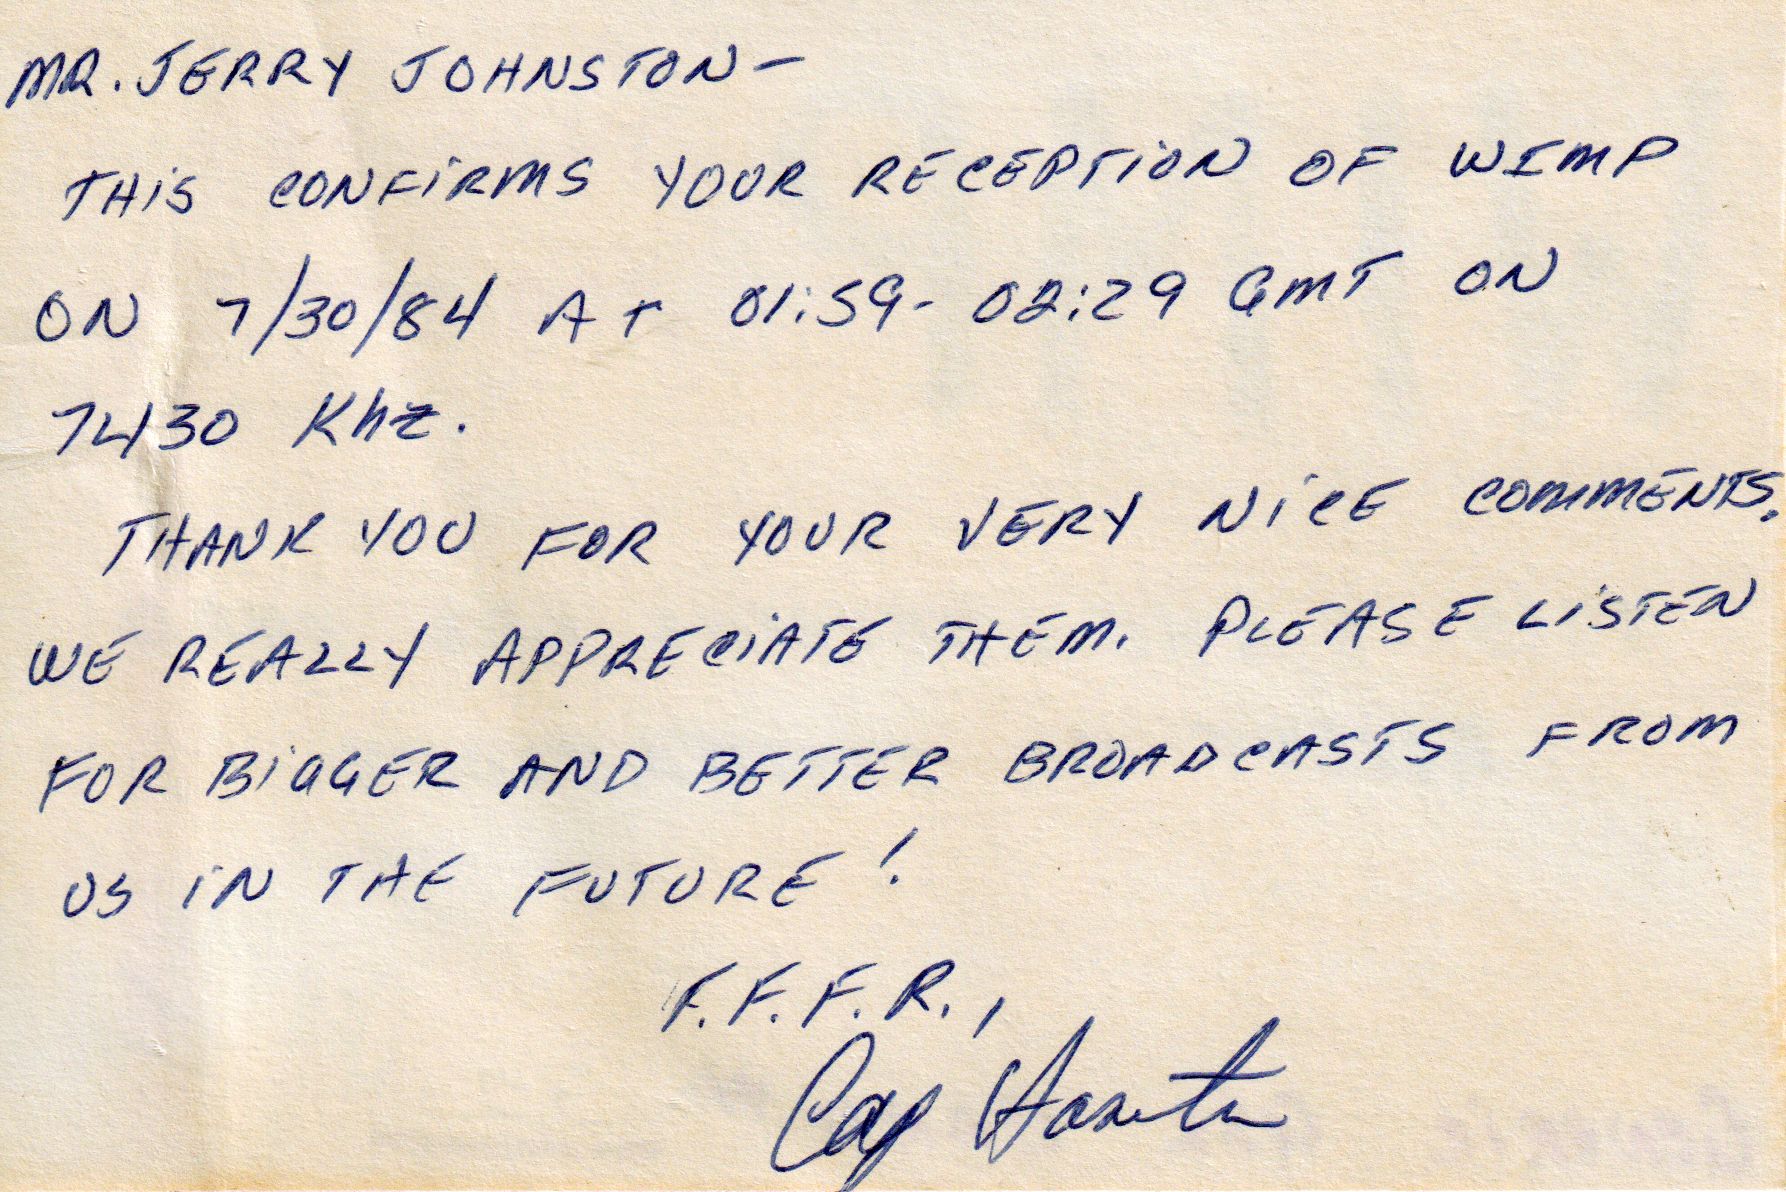 MR. JERRY JOHNSTON—
THIS CONFIRMS YOUR RECEPTION OF WIMP
ON 7/30/84 AT 01:59-02:29 GMT ON
7430 Khz.
THANK YOU FOR YOUR VERY NICE COMMENTS.
WE REALLY APPRECIATE THEM. PLEASE LISTEN
FOR BIGGER AND BETTER BROADCASTS FROM
US IN THE FUTURE!
F.F.F.R.,
Cap